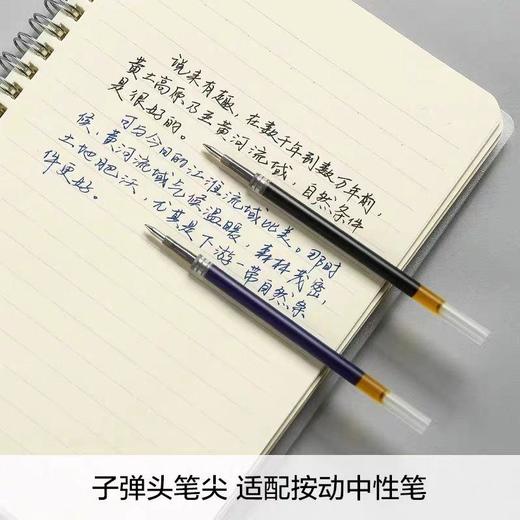 说来有趣，在数千年到数万年前，
黄土高原乃至黄河流域，自然条件
是很好的。
可与今日的江淮流域比美。那时
候，黄河流域气候温暖，森林茂密，
土地肥沃，尤其是下游一带自然条
件更好。
子弹头笔尖 适配按动中性笔